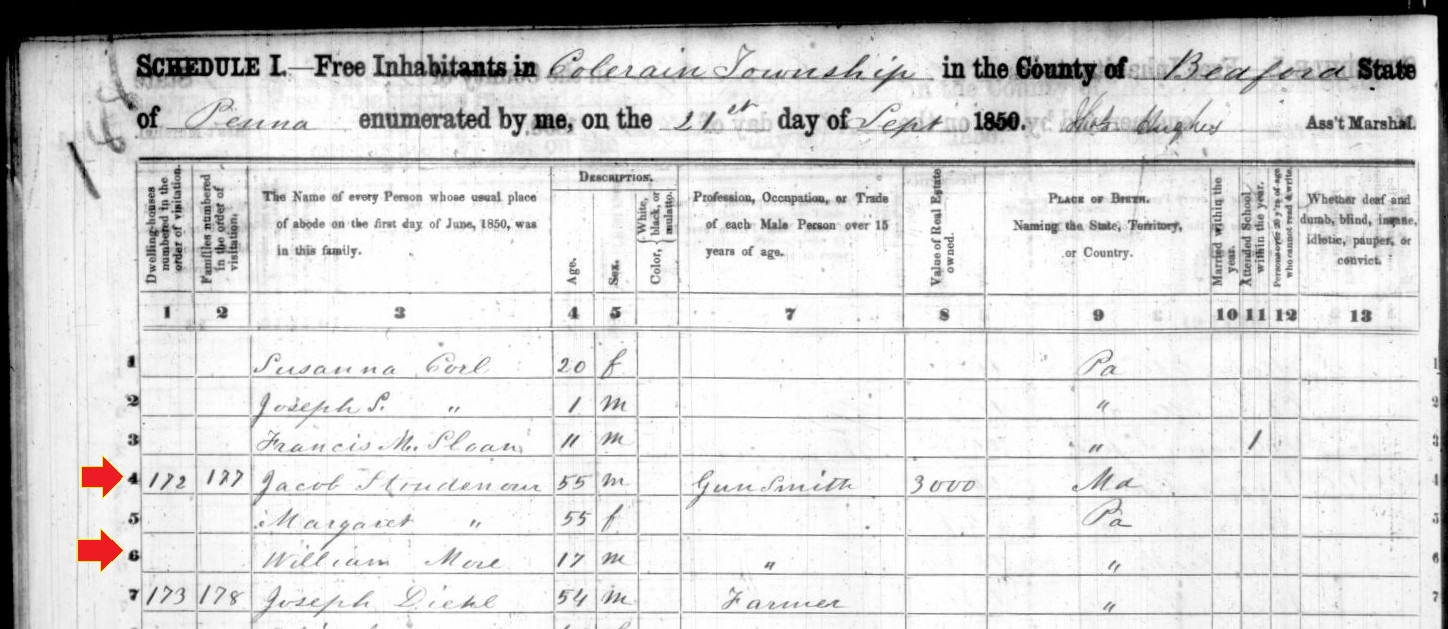 SCHEDULE I.—Free Inhabitants in Colerain Township in the County of Bedford State
of Penna enumerated by me, on the 21st day of Sept 1850. Hughes Ass't Marshal.
Dwelling-houses numbered in the order of visitation.
Families numbered in the order of visitation.
The Name of every Person whose usual place of abode on the first day of June, 1850, was in this family.
DESCRIPTION.
Age.
Sex.
Color, { White, black, or mulatto.
Profession, Occupation, or Trade of each Male Person over 15 years of age.
Value of Real Estate owned.
PLACE OF BIRTH. Naming the State, Territory, or Country.
Married within the year.
Attended School within the year.
Persons over 20 y'rs of age who cannot read & write.
Whether deaf and dumb, blind, insane, idiotic, pauper, or convict.
1 2 3 4 5 6 7 8 9 10 11 12 13
1 Susanna Corl 20 f Pa 1
2 Joseph S. " 1 m " 2
3 Francis M. Sloan 11 m " 1 3
4 172 177 Jacob Stoudenour 55 m Gun Smith 3000 Md 4
5 Margaret " 55 f Pa 5
6 William More 17 m " " 6
7 173 178 Joseph Diehl 54 m Farmer " 7